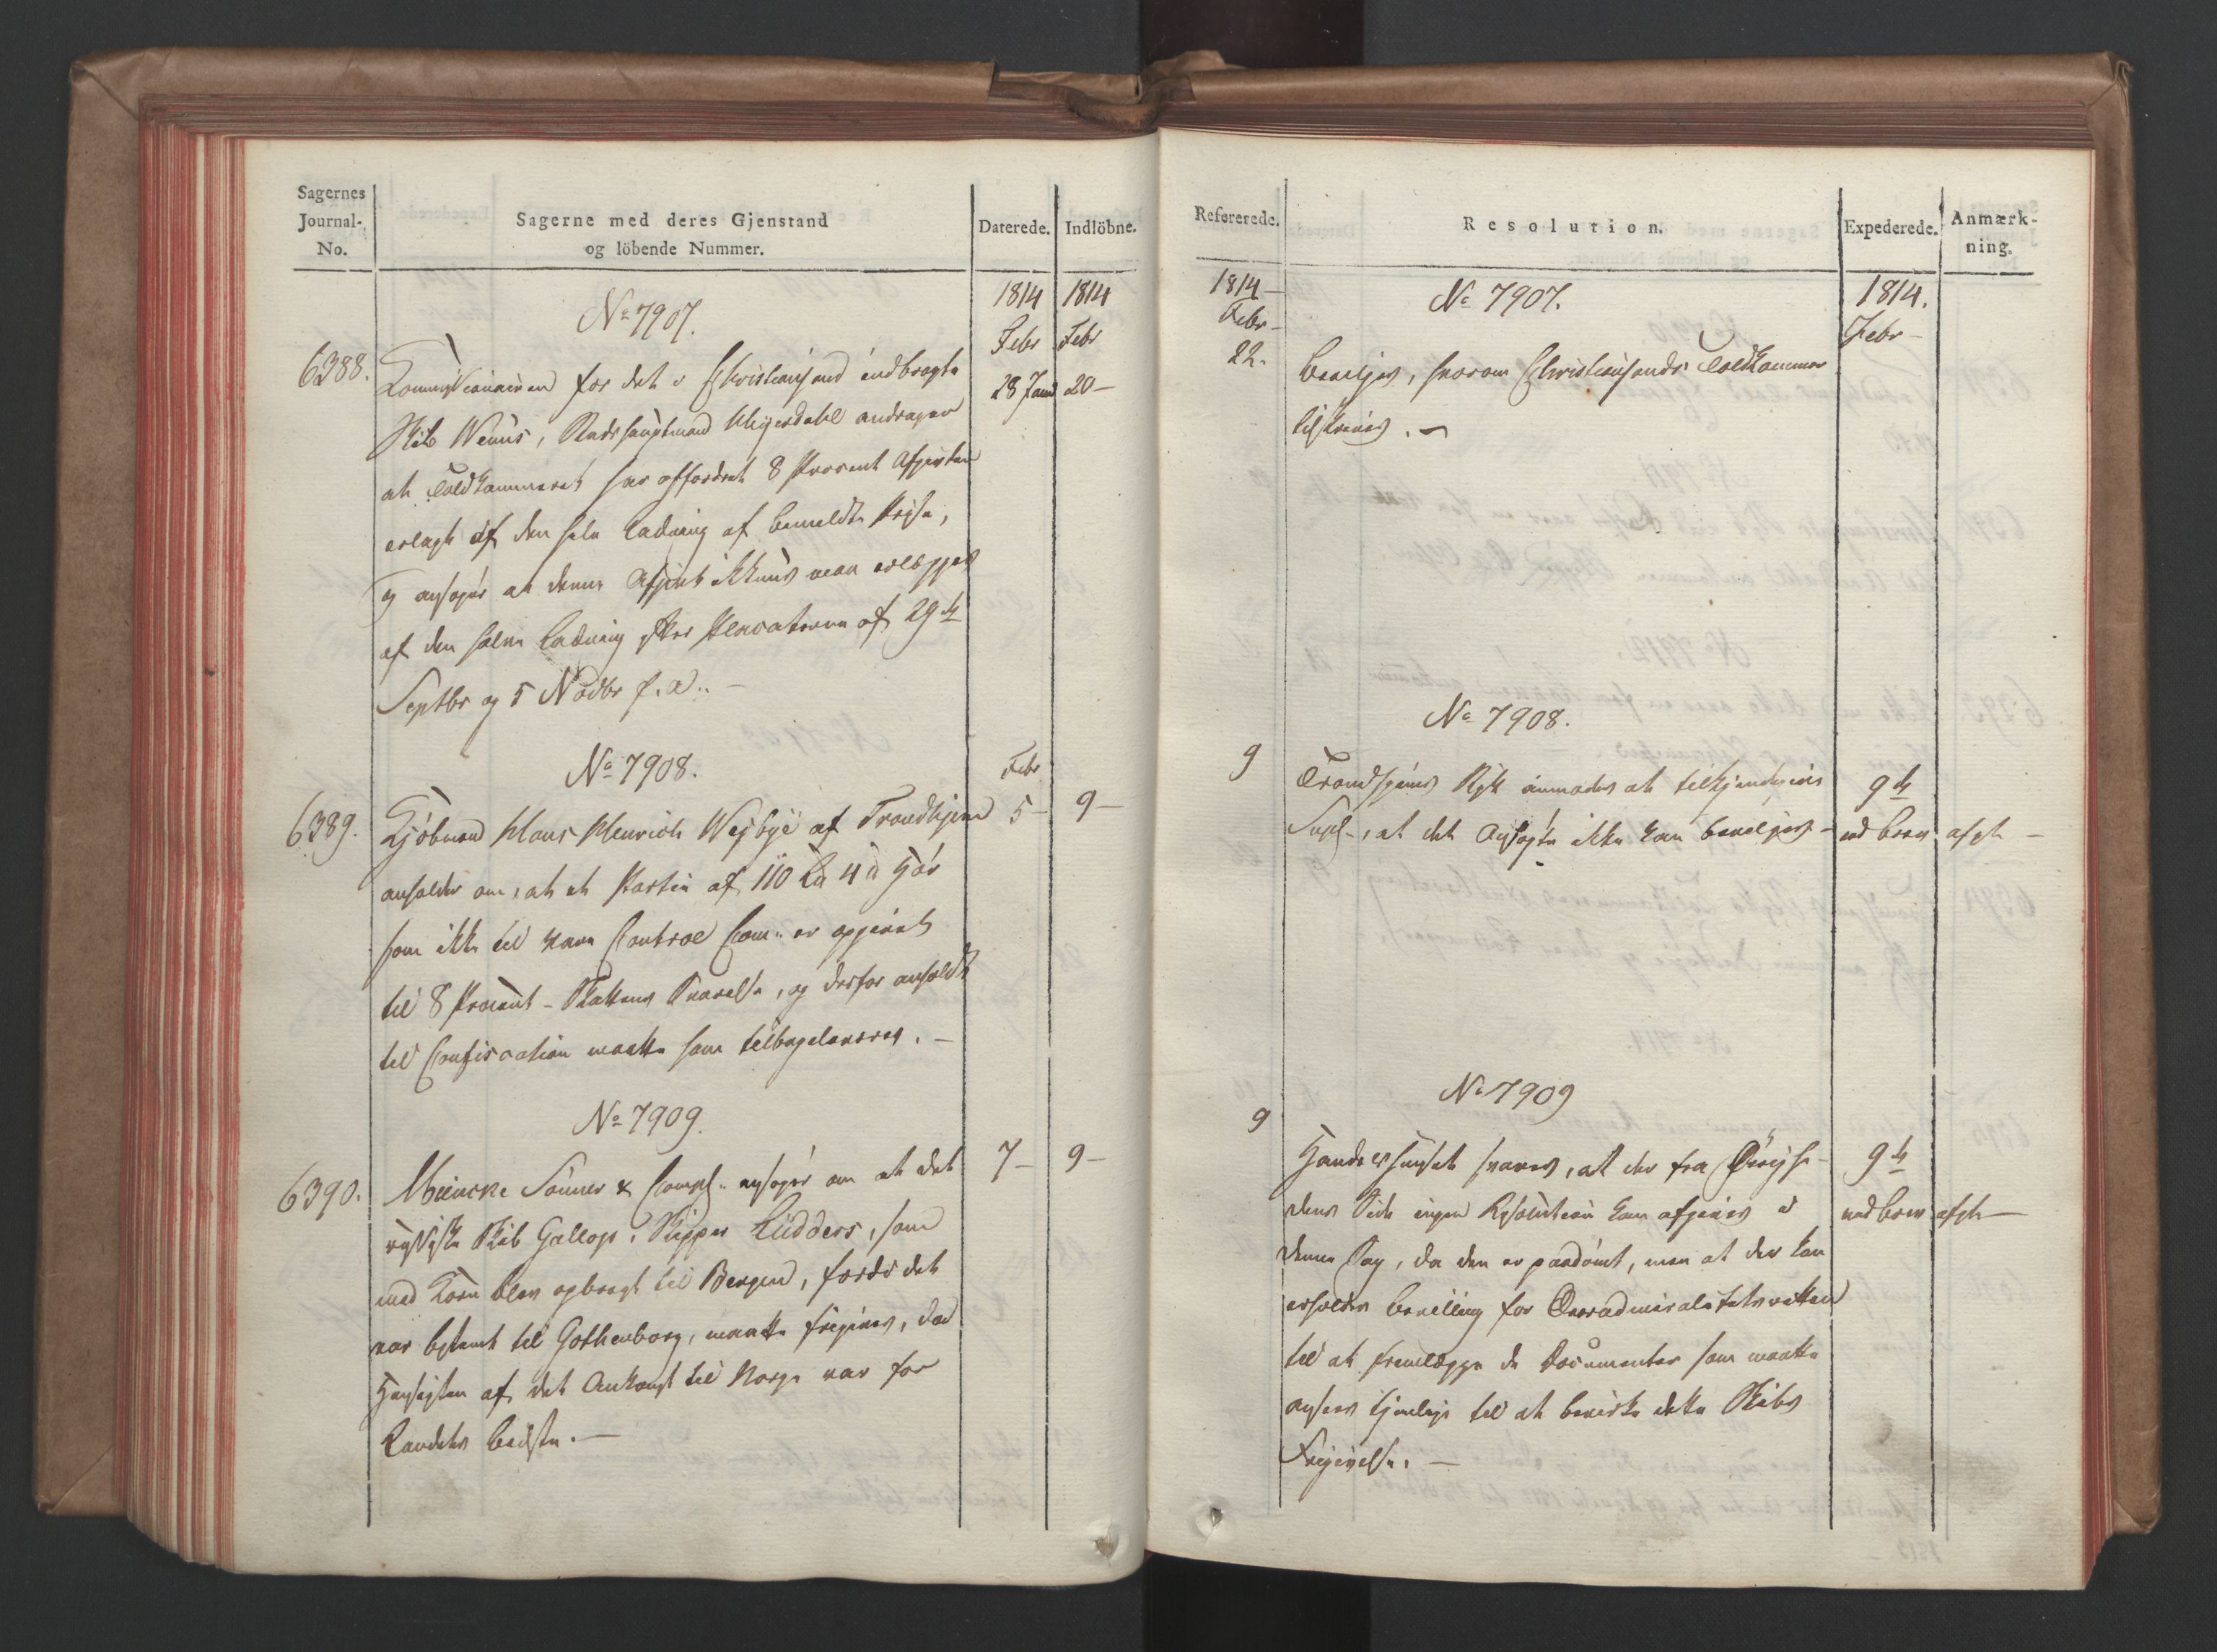 Sagernes
Journal-
No.
Sagerne med deres Gjenstand
og löbende Nummer.
Daterede.
Indlöbne.
1814
1814
Febr
Febr
No 7907.
6388.
28 Janu
20 —
Commissionairen for det i Christiansand indbragte
Skib Wenus, Stadshauptmand Meyerdahl andrager
at Toldkammeret har affordret 8 Procent Afgivten
erlagt af den hele Ladning af bemeldte Prise,
og ansøger at denne Afgivt ikkun maa erlægges
af den halve Ladning efter Placaterne af 29de
Septbr og 5 Novbr f. A. —
No 7908.
Febr
6389.
5 —
9 —
Kjøbmand Claus Henrich Wejbye af Trondhjem
anholder om, at et Partie af 110 4 Tjær
som ikke til Control Com: er opgivet
til 8 Procent - Skattens Svarelse, og derfor anholdt
til Confiscation maatte ham tilbageleveres. —
No 7909.
6390.
7 —
9 —
Meincke Sönner & Comp: ansøger om at det
russiske Skib Gallops, Skipper Lüdders, som
med Korn blev opbragt til Bergen, fordi det
var bestemt til Gothenborg, maatte frigives, da
Hensigten af det Ankomst til Norge var for
Landets bedste. —
Refererede.
Resolution.
Expederede.
Anmærk-
ning.
1814 —
Febr —
1814.
Febr —
No 7907.
22.
Bevilges, hvorom Christiansands Toldkammer
tilskrives. —
No 7908.
9
9de
Trondhjems Stift anmodes at tilkjendegive
Suppl:, at det Ansøgte ikke kan bevilges —
ved brev afgl —
No 7909
9
9de
Handelshuset svares, at der fra Øvrighe-
dens Side ingen Resolution kan afgives i
ved brev afgl —
denne Sag, da den er paadömt, men at der kan
erholdes Bevilling for Overadmiralitetsretten
til at fremlægge de Documenter som maatte
ansees tjenlige til at bevirke dette Skibs
Frigivelse. —